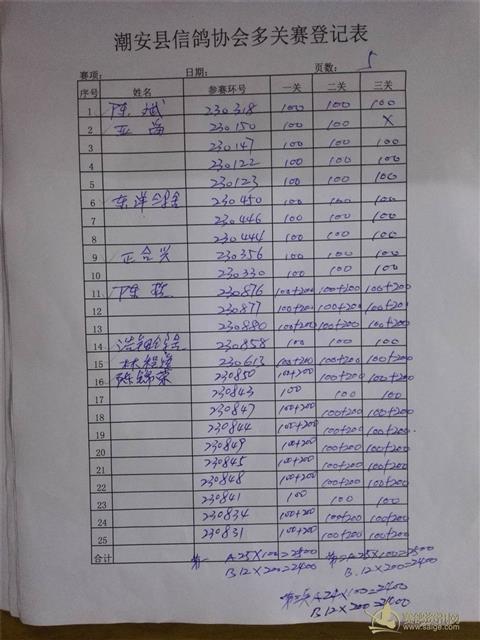 潮安县信鸽协会多关赛登记表
赛项: 日期: 页数: 5
序号 姓名 参赛环号 一关 二关 三关
1 陈斌 230318 100 100 100
2 230150 100 100 X
3 230147 100 100 100
4 230122 100 100 100
5 230123 100 100 100
6 东洋鸽舍 230450 100 100 100
7 230446 100 100 100
8 230444 100 100 100
9 正合兴 230356 100 100 100
10 230330 100 100 100
11 陈 230876 100+200 100+200 100+200
12 230877 100+200 100+200 100+200
13 230880 100+200 100+200 100+200
14 230858 100 100 100
15 林 230613 100+200 100+200 100+200
16 陈锦荣 230850 100+200 100+200 100+200
17 230843 100 100 100
18 230847 100+200 100+200 100+200
19 230844 100+200 100+200 100+200
20 230849 100+200 100+200 100+200
21 230845 100+200 100+200 100+200
22 230848 100+200 100+200 100+200
23 230841 100 100 100
24 230834 100+200 100+200 100+200
25 230831 100+200 100+200 100+200
合计 第一 A25×100=2500 第二A25×100=2500
B.12×200=2400 B.12×200=2400
第三 A24×100=2400
B12×200=2400
赛鸽资讯网
www.saige.com